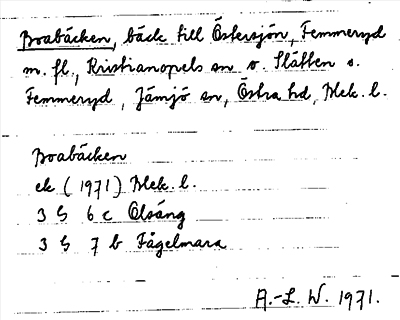 Boabäcken, bäck till Östersjön, Femmeryd
m. fl., Kristianopels sn o. Slätten s.
Femmeryd, Jämjö sn, Östra hd, Blek. l.
Boabäcken
ek (1971) Blek. l.
3 G 6 c Olsäng
3 G 7 b Fågelmara
A.-L. W. 1971.